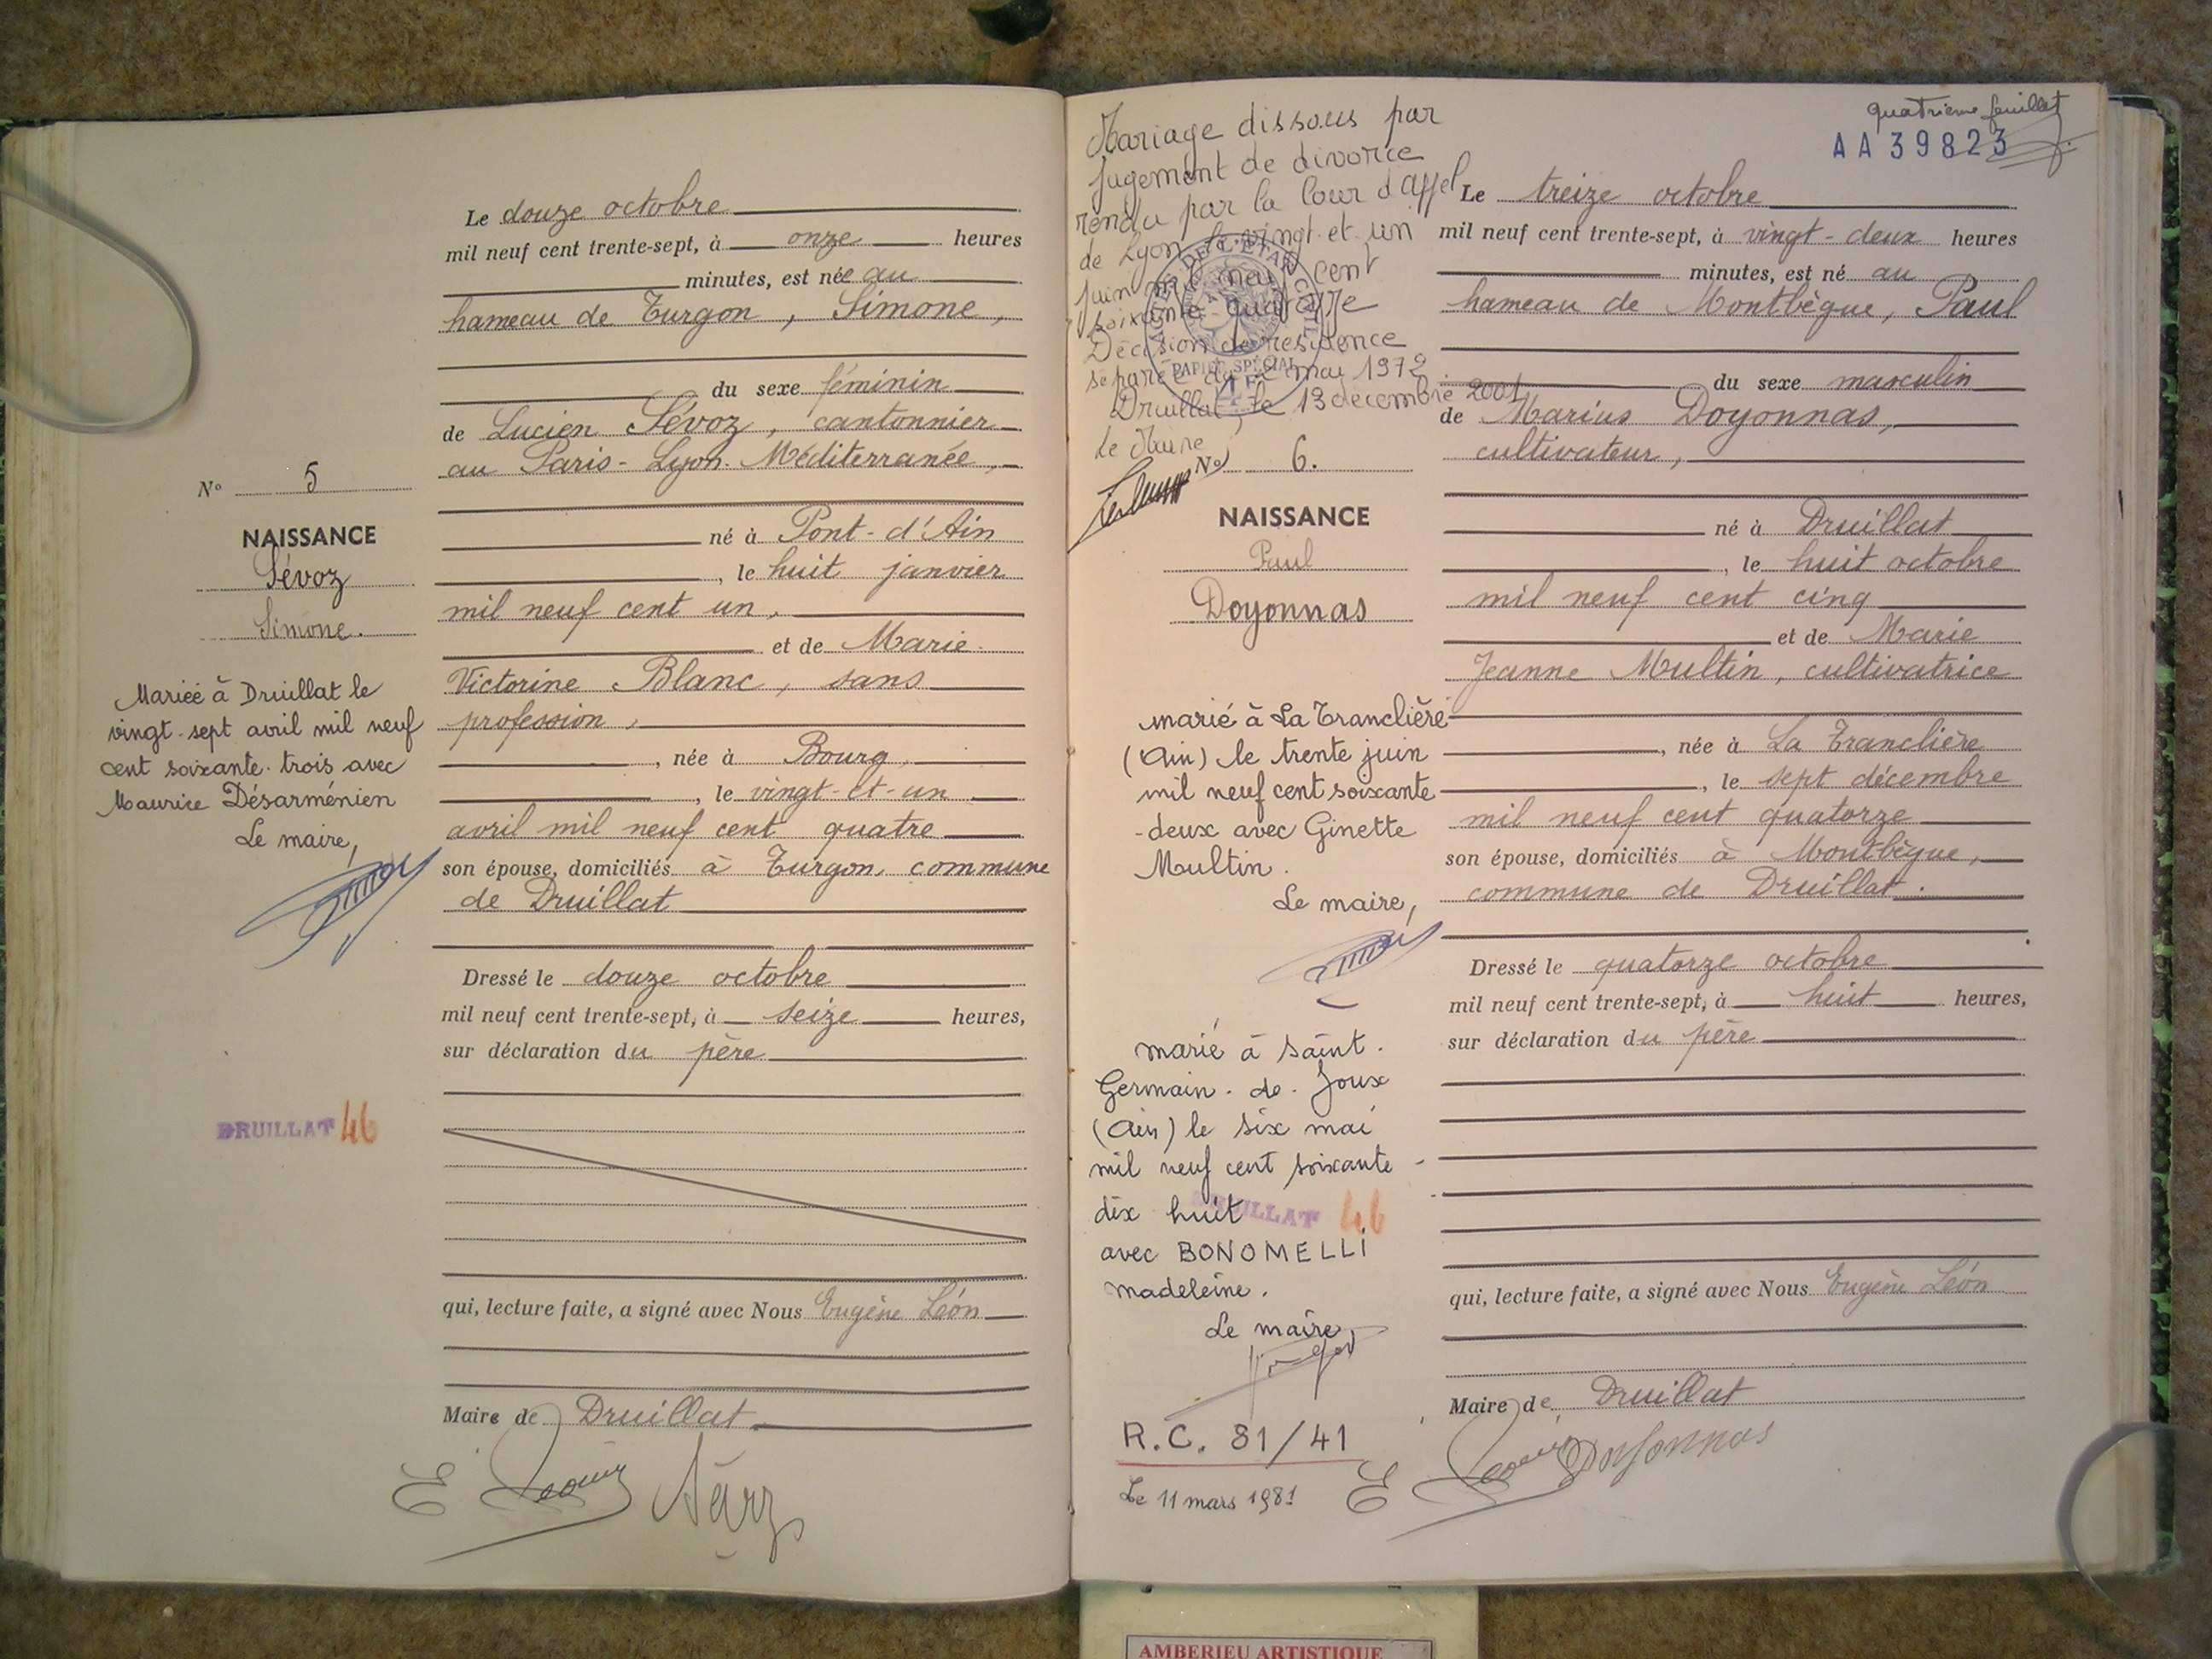 Le douze octobre
mil neuf cent trente-sept, à onze heures
minutes, est née au
hameau de Turgon, Simone,
du sexe féminin
de Lucien Sévoz, cantonnier
au Paris-Lyon-Méditerranée,
né à Pont-d'Ain
, le huit janvier
mil neuf cent un,
et de Marie
Victorine Blanc, sans
profession,
, née à Bourg,
, le vingt-et-un
avril mil neuf cent quatre
son épouse, domiciliés à Turgon, commune
de Druillat
Dressé le douze octobre
mil neuf cent trente-sept, à seize heures,
sur déclaration du père
qui, lecture faite, a signé avec Nous Eugène Léon
Maire de Druillat
N° 5
NAISSANCE
Sévoz
Simone.
Mariée à Druillat le
vingt-sept avril mil neuf
cent soixante-trois avec
Maurice Désarménien
Le maire,
DRUILLAT 46
quatrième feuillet
AA39823
Mariage dissous par
jugement de divorce
rendu par la Cour d'Appel
de Lyon le vingt et un
juin mil neuf cent
soixante quatorze
Décision de résidence
séparée du mai 1972
Druillat le 13 decembre 2001
Le Maire
PAPIER SPÉCIAL
N° 6.
NAISSANCE
Paul
Doyonnas
marié à La Tranclière
(Ain) le trente juin
mil neuf cent soixante
-deux avec Ginette
Multin.
Le maire,
marié à Saint-
Germain-de-Joux
(Ain) le six mai
mil neuf cent soixante-
dix huit
avec BONOMELLI
madeleine.
Le maire,
DRUILLAT 46
R.C. 81/41
Le 11 mars 1981
Le treize octobre
mil neuf cent trente-sept, à vingt-deux heures
minutes, est né au
hameau de Montbègue, Paul
du sexe masculin
de Marius Doyonnas,
cultivateur,
né à Druillat
, le huit octobre
mil neuf cent cinq
et de Marie
Jeanne Multin, cultivatrice
, née à La Tranclière
, le sept décembre
mil neuf cent quatorze
son épouse, domiciliés à Montbègue,
commune de Druillat.
Dressé le quatorze octobre
mil neuf cent trente-sept, à huit heures,
sur déclaration du père
qui, lecture faite, a signé avec Nous Eugène Léon
Maire de Druillat
Doyonnas
AMBERIEU ARTISTIQUE